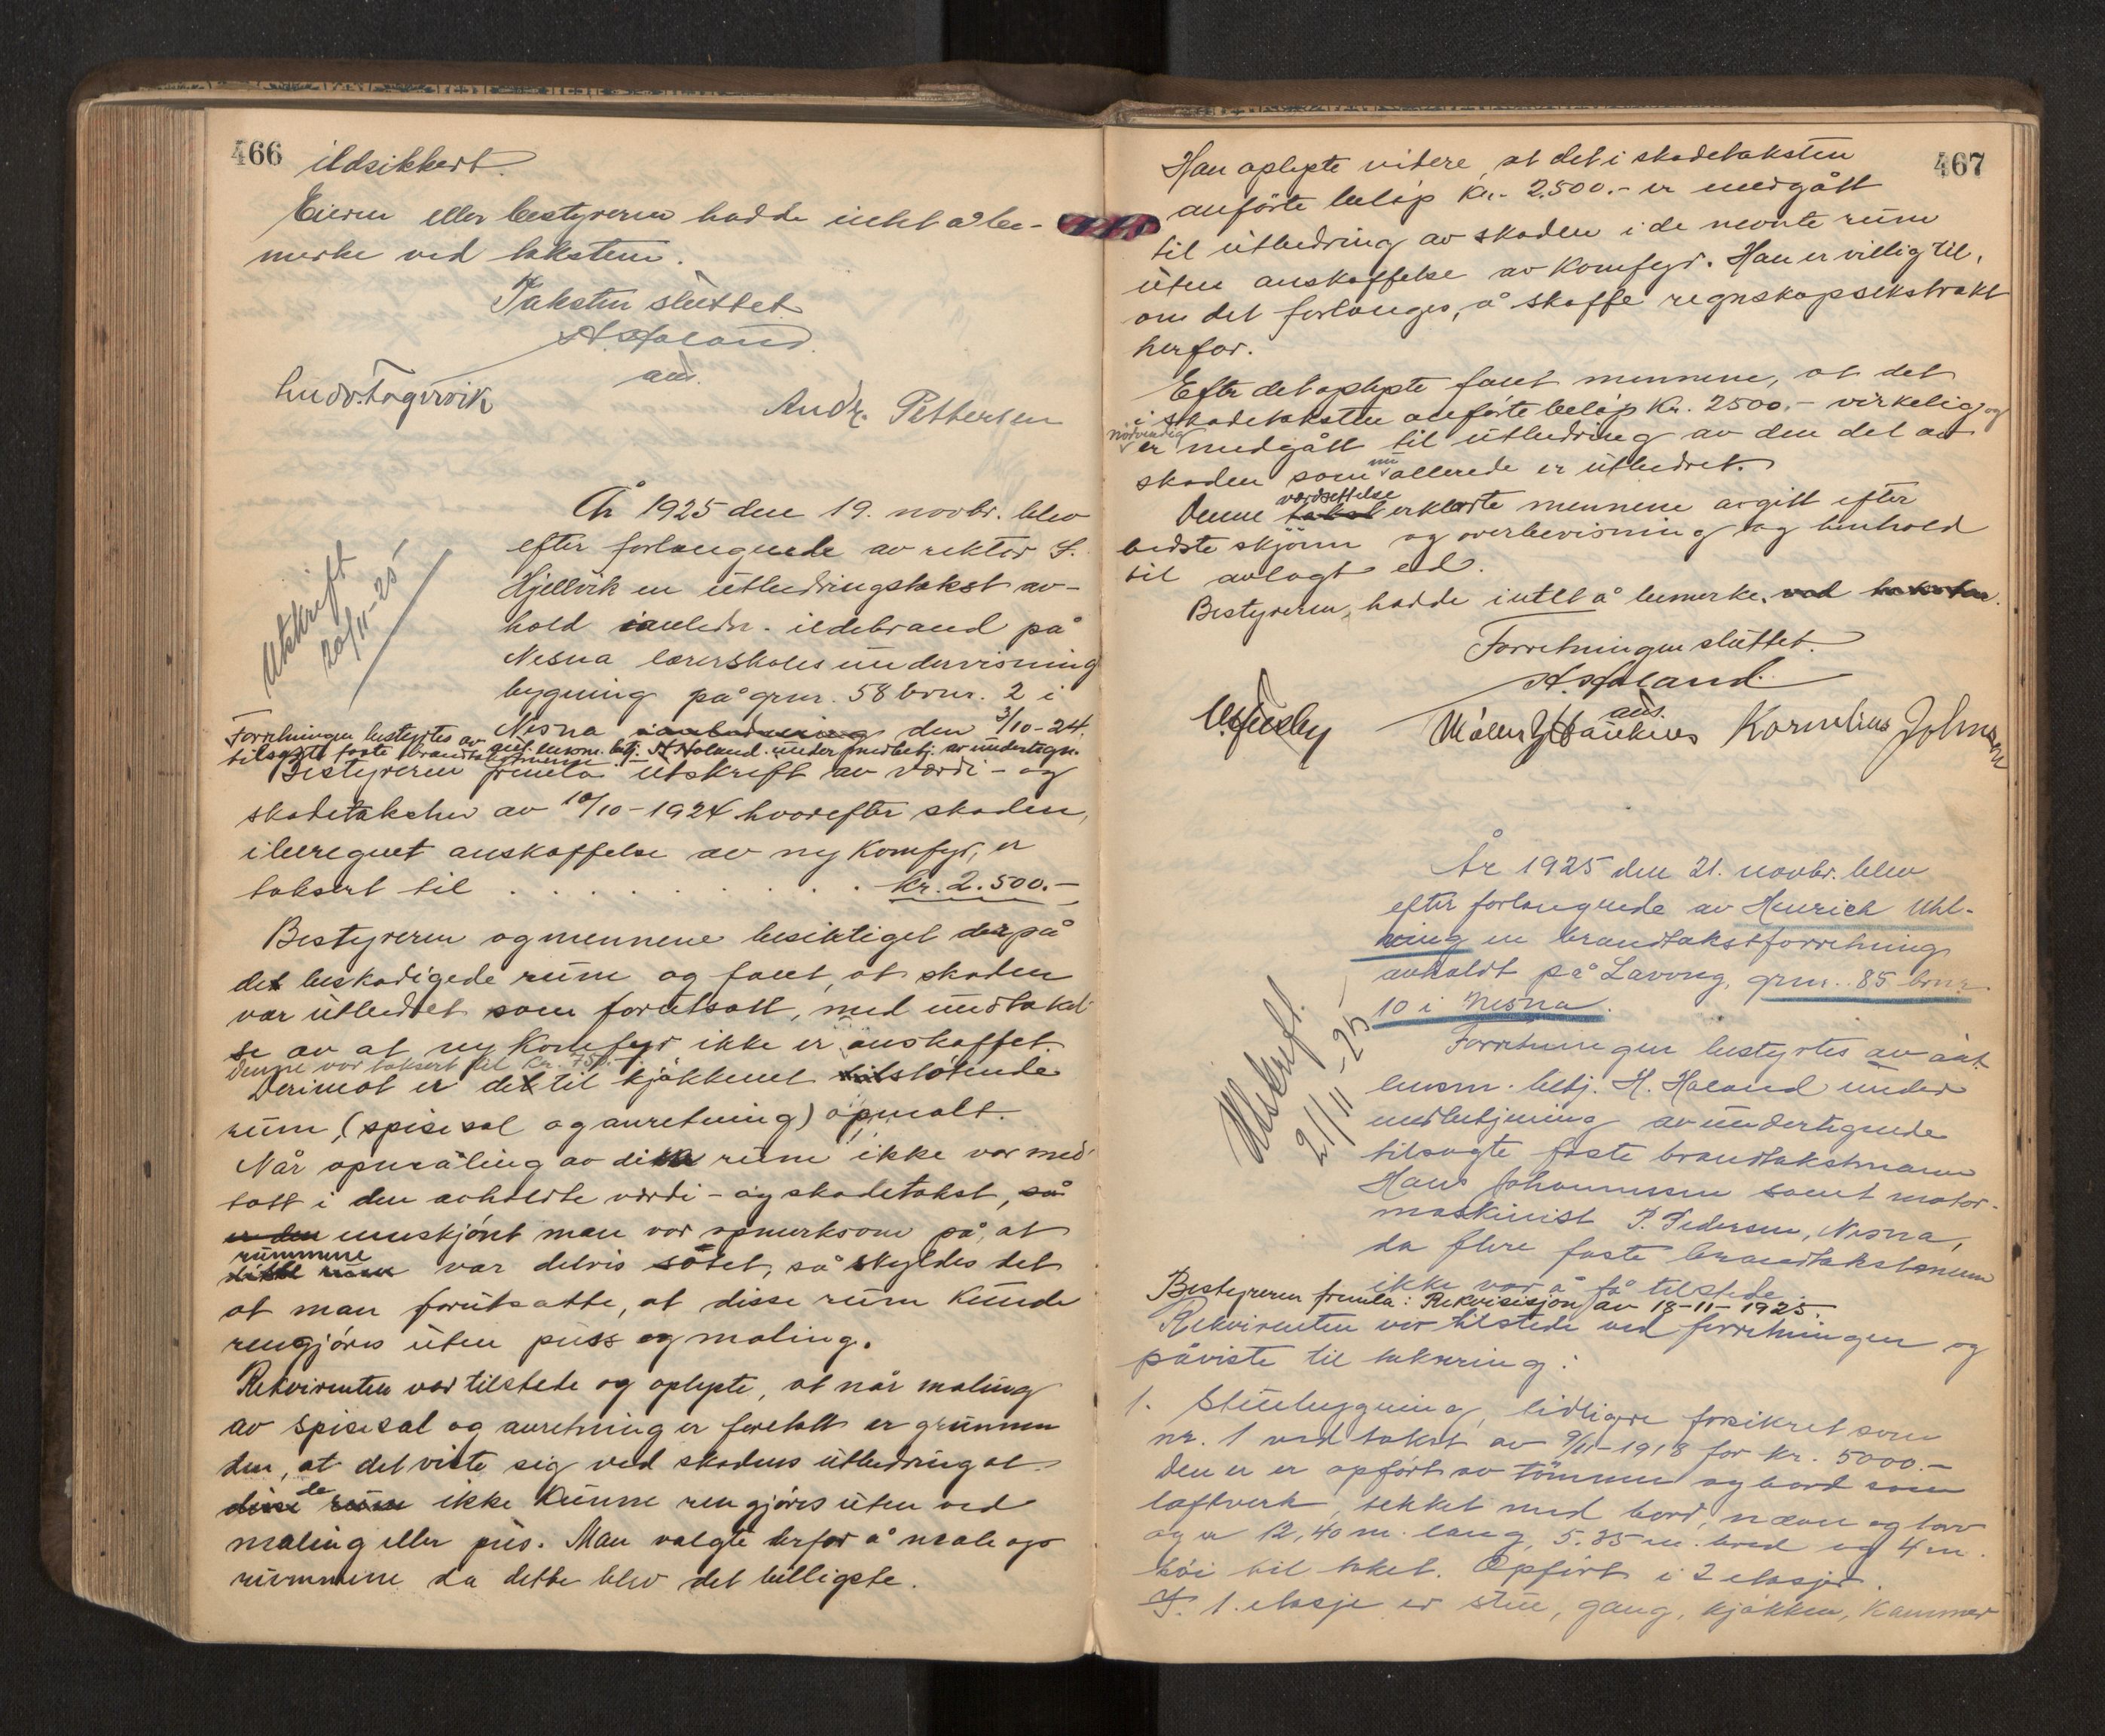 466
ildsikkert.
Eieren eller bestyreren hadde intet å be-
merke ved taksten.
Taksten sluttet
H. Haland
ans.
Ludv. Fagervik
Andr. Pettersen
Utskrift
20/11-25
År 1925 den 19. novbr. blev
efter forlangende av rektor S.
Hjellvik en utbedringstakst av-
hold i anledn. ildebrand på
Nesna lærerskoles undervisning
bygning på grnr. 58 brnr. 2 i
Nesna den 3/10-24.
Forretningen bestyrtes av ans. lensm. betj. H. Haland under medbetj. av undertegn.
tilsagte faste brandtakstmenn
Bestyreren fremla utskrift av værdi- og
skadetaksten av 10/10-1924 hvorefter skaden,
iberegnet anskaffelse av ny komfyr, er
taksert til . . . . . . . . . kr. 2.500.-
Bestyreren og mennene besiktiget derpå
det beskadigede rum og fant, at skaden
var utbedret som forutsatt, med undtakel-
se av at ny komfyr ikke er anskaffet.
Denne var taksert til kr. 750.-
Derimot er det til kjøkkenet tilstøtende
rum, (spisesal og anretning) opmalt.
Når opmåling av disse rum ikke var med-
tatt i den avholdte værdi- og skadetakst, så
er den enskjønt man var opmerksom på, at
rummene
var delvis sotet, så skyldes det
at man forutsatte, at disse rum kunde
rengjøres uten puss og maling.
Rekvirenten var tilstede og oplyste, at når maling
av spisesal og anretning er foretatt er grunnen
den, at det viste sig ved skadens utbedring at
disse rum de ikke kunne rengjøres uten ved
maling eller pus. Man valgte derfor å male op
rummene da dette blev det billigste.
467
Han oplyste videre, at det i skadetaksten
anførte beløp kr. 2.500.- er medgått
til utbedring av skaden i de nevnte rum
uten anskaffelse av komfyr. Han er villig til,
om det forlanges, å skaffe regnskapsekstrakt
herfor.
Efter det oplyste fant mennene, at det
i skadetaksten anførte beløp kr. 2500.- virkelig og
nødvendig
er medgått til utbedring av den del av
skaden som nu allerede er utbedret.
værdsettelse
Denne takst erklærte mennene avgitt efter
bedste skjønn og overbevisning og henhold
til avlagt ed.
Bestyreren, hadde intet å bemerke. ved taksten.
Forretningen sluttet.
H. Haland
ans.
Kornelius Johnsen
Utskrift.
21/11-25
År 1925 den 21. novbr. blev
efter forlangende av Henrich Uhl-
ving en brandtakstforretning
avholdt på Lavong, grnr. 85 brnr.
10 i Nesna.
Forretningen bestyrtes av ans.
lensm. betj. H. Haland under
medbetjening av undertegnede
tilsagte faste brandtakstmann
Hans Johannessen samt motor-
maskinist P. Pedersen, Nesna,
da flere faste brandtakstmenn
ikke var å få tilstede.
Bestyreren fremla: Rekvisisjon av 18-11-1925.
Rekvirenten var tilstede ved forretningen og
påviste til taksering:
1. Stuebygning, tidligere forsikret som
nr. 1 ved takst av 9/11-1918 for kr. 5000.-
Den er er opført av tømmer og bord som
laftverk, tekket med bord, næver og torv
og er 12,40 m. lang, 5.35 m. bred og 4 m.
høi til taket. Opført i 2 etasjer.
I 1. etasje er stue, gang, kjøkken, kammer